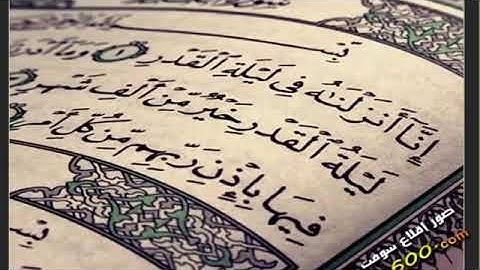 إِنَّآ أَنزَلْنَٰهُ فِى لَيْلَةِ ٱلْقَدْرِ ١
لَيْلَةُ ٱلْقَدْرِ خَيْرٌ مِّنْ أَلْفِ شَهْرٍ
فِيهَا بِإِذْنِ رَبِّهِم مِّن كُلِّ أَمْرٍ
صور اقلاع سوفت
600.com